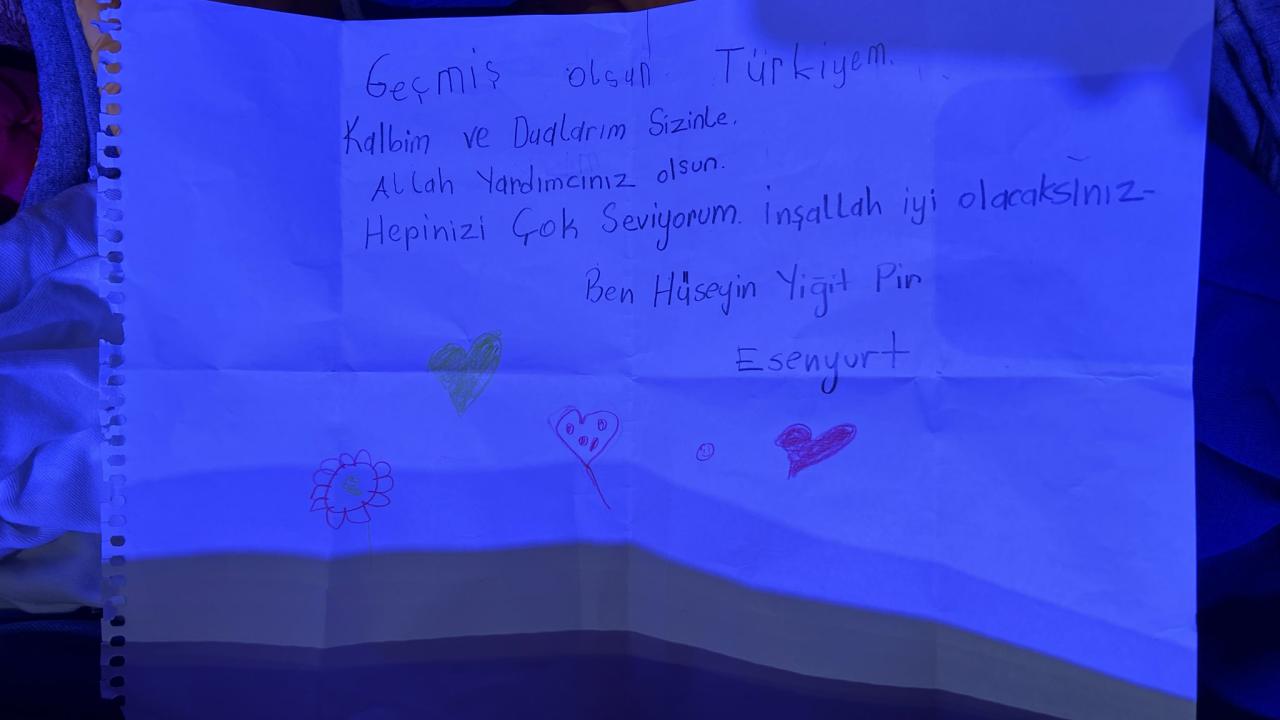 Geçmiş olsun Türkiyem.
Kalbim ve Dualarım Sizinle.
Allah Yardımcınız olsun.
Hepinizi Çok Seviyorum. İnşallah iyi olacaksınız-
Ben Hüseyin Yiğit Pir
Esenyurt